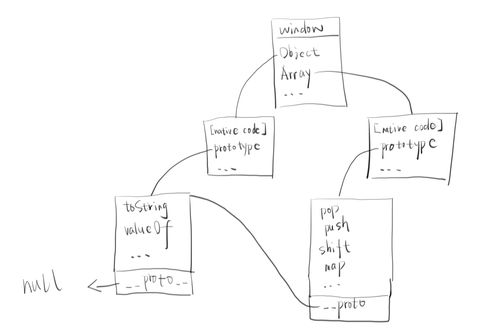 window
Object
Array
...
[native code]
prototype
...
[native code]
prototype
...
toString
valueOf
...
__proto__
null
pop
push
shift
map
...
__proto